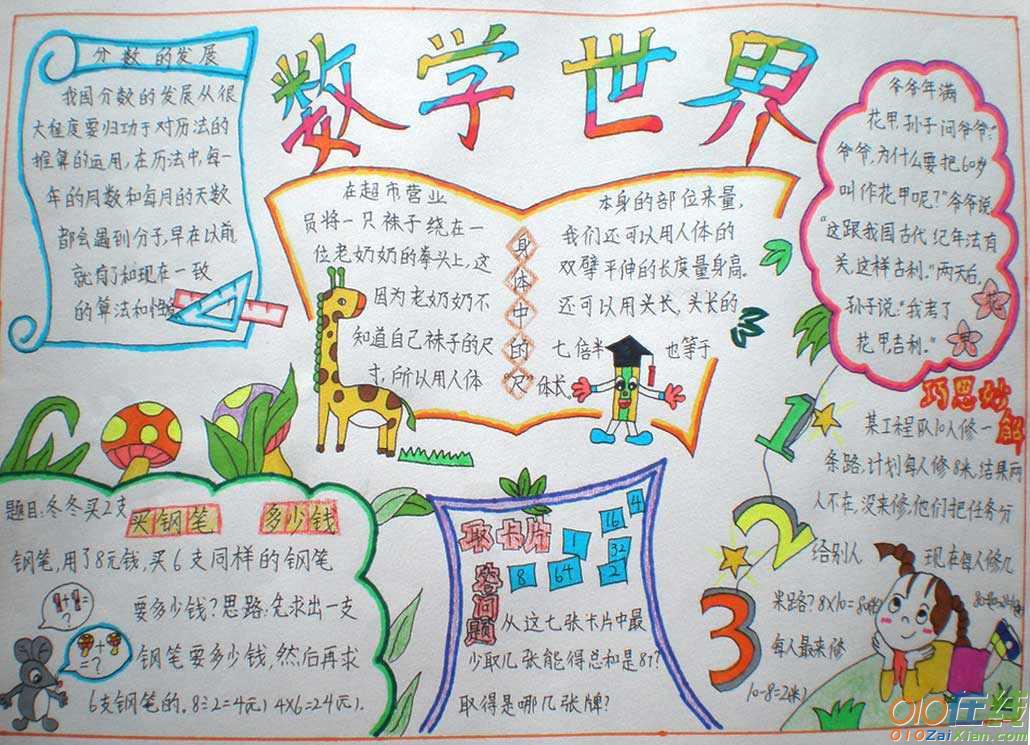 数学世界
分数的发展
我国分数的发展从很
大程度要归功于对历法的
推算的运用,在历法中,每一
年的周数和每月的天数
都会遇到分子,早在以前
就有了和现在一致
的算法和
在超市营业
员将一只袜子绕在一
位老奶奶的拳头上,这
因为老奶奶不
知道自己袜子的尺
寸,所以用人体
身体中的“尺”
本身的部位来量,
我们还可以用人体的
双臂平伸的长度量身高。
还可以用头长,头长的
七倍半 也等于
体长。
爷爷年满
花甲,孙子问爷爷:“
爷爷,为什么要把60岁
叫作花甲呢?”爷爷说
“这跟我国古代纪年法有
关,这样吉利。”两天后,
孙子说:“我考了
花甲,吉利。”
花
甲
巧思妙解
某工程队10人修一
条路,计划每人修8米,结果两
人不在,没来修,他们把任务分
给别人 现在每人修几
米路?8×10=80米
每人最来修
10-8=2米)
1
2
3
题目:冬冬买2支
买钢笔 多少钱
钢笔,用了8元钱,买6支同样的钢笔
要多少钱?思路:先求出一支
钢笔要多少钱,然后再求
6支钢笔的。8÷2=4元) 4×6=24元).
+ = ?
+ = ?
取卡片
答问题
1
16
4
8
64
32
2
从这七张卡片中最
少取几张能得总和是87?
取得是哪几张牌?
010在线
010ZaiXian.com